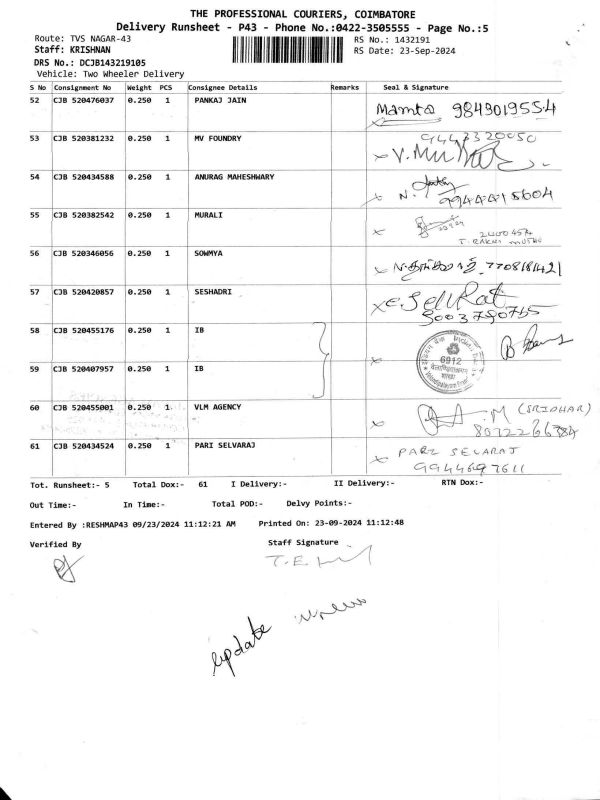 THE PROFESSIONAL COURIERS, COIMBATORE
Delivery Runsheet - P43 - Phone No.:0422-3505555 - Page No.:5
Route: TVS NAGAR-43
RS No.: 1432191
Staff: KRISHNAN
RS Date: 23-Sep-2024
DRS No.: DCJB143219105
Vehicle: Two Wheeler Delivery
S No Consignment No Weight PCS Consignee Details Remarks Seal & Signature
52 CJB 520476037 0.250 1 PANKAJ JAIN Mamta 9843019554
53 CJB 520381232 0.250 1 MV FOUNDRY 9443320050
54 CJB 520434588 0.250 1 ANURAG MAHESHWARY N. 9944415604
55 CJB 520382542 0.250 1 MURALI
56 CJB 520346056 0.250 1 SOWMYA 7708181421
57 CJB 520420857 0.250 1 SESHADRI 9003790715
58 CJB 520455176 0.250 1 IB 6912
59 CJB 520407957 0.250 1 IB
60 CJB 520455001 0.250 1 VLM AGENCY M (SRIDHAR)
61 CJB 520434524 0.250 1 PARI SELVARAJ PARI SELARAJ
9944697611
Tot. Runsheet:- 5 Total Dox:- 61 I Delivery:- II Delivery:- RTN Dox:-
Out Time:- In Time:- Total POD:- Delvy Points:-
Entered By :RESHMAP43 09/23/2024 11:12:21 AM Printed On: 23-09-2024 11:12:48
Verified By Staff Signature
update